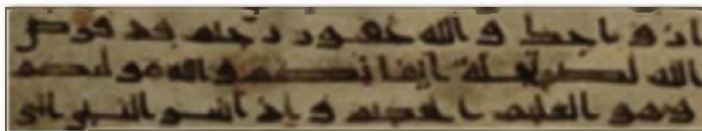 ازواجك والله غفور رحيم قد فرض
الله لكم تحلة ايمانكم والله موليكم
وهو العليم الحكيم واذ اسر النبي الى